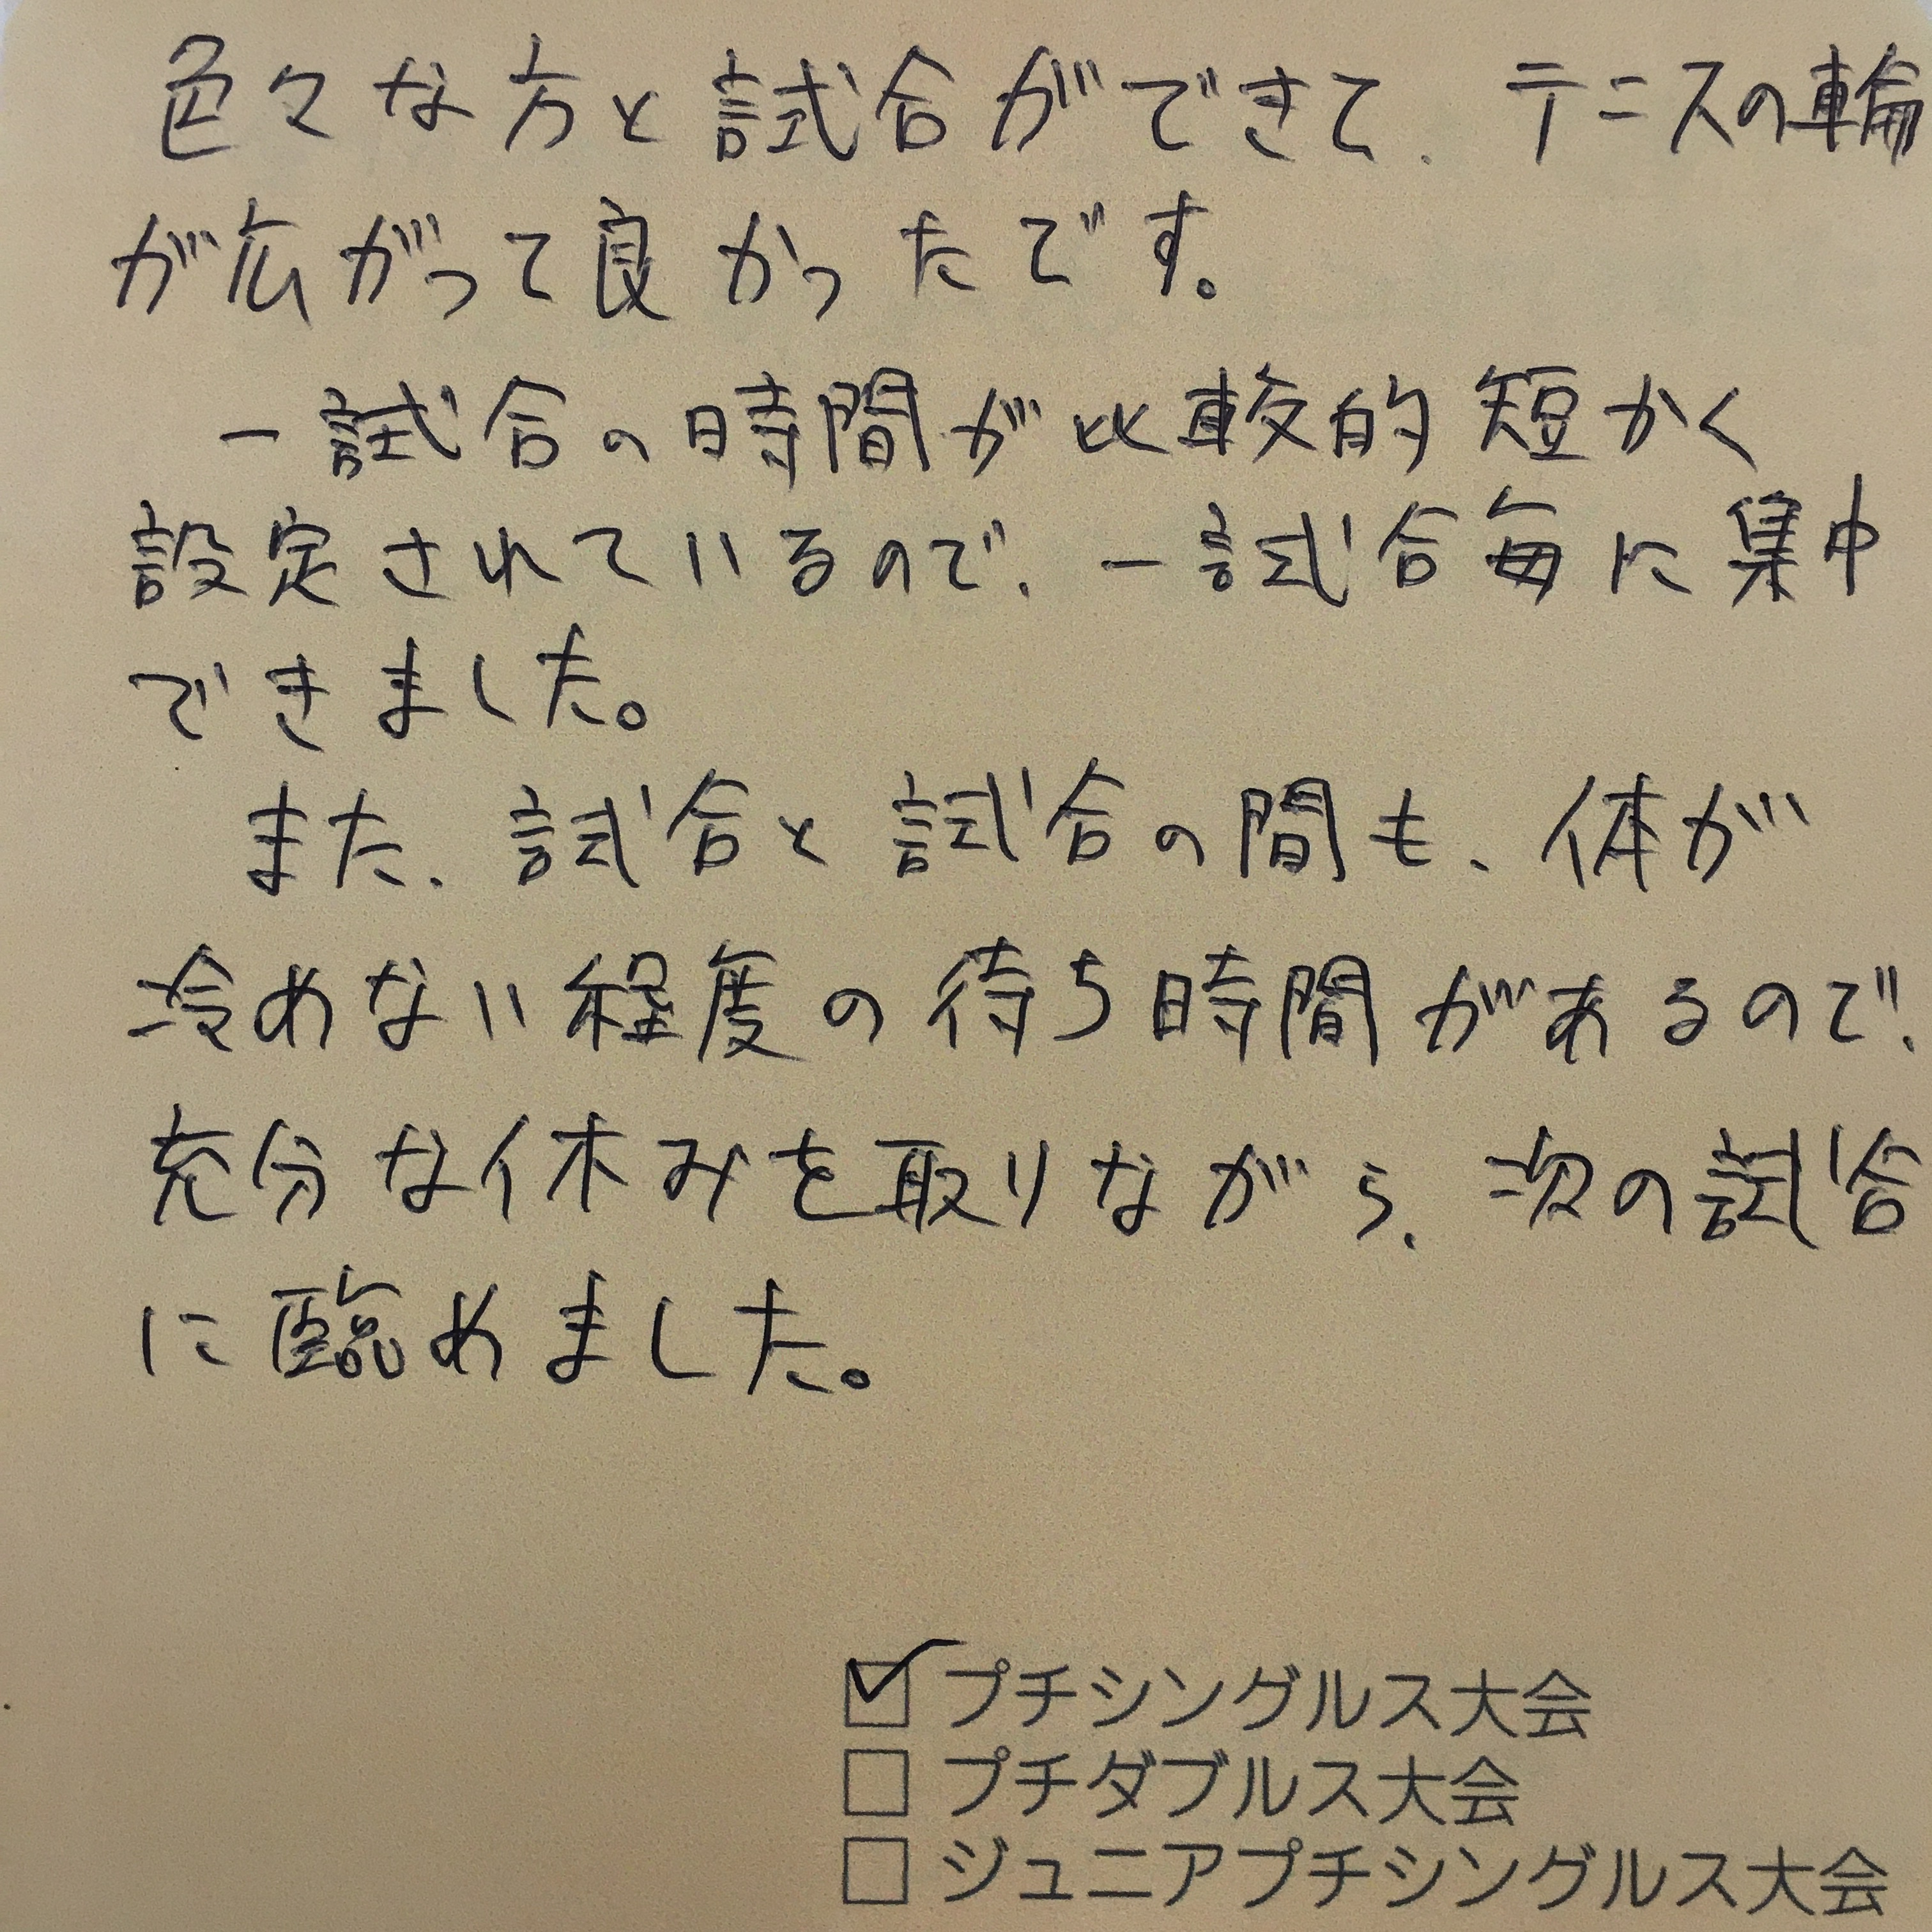 色々な方と試合ができて、テニスの輪
が広がって良かったです。
一試合の時間が比較的短かく
設定されているので、一試合毎に集中
できました。
また、試合と試合の間も、体が
冷めない程度の待ち時間があるので、
充分な休みを取りながら、次の試合
に臨めました。
☑プチシングルス大会
□プチダブルス大会
□ジュニアプチシングルス大会